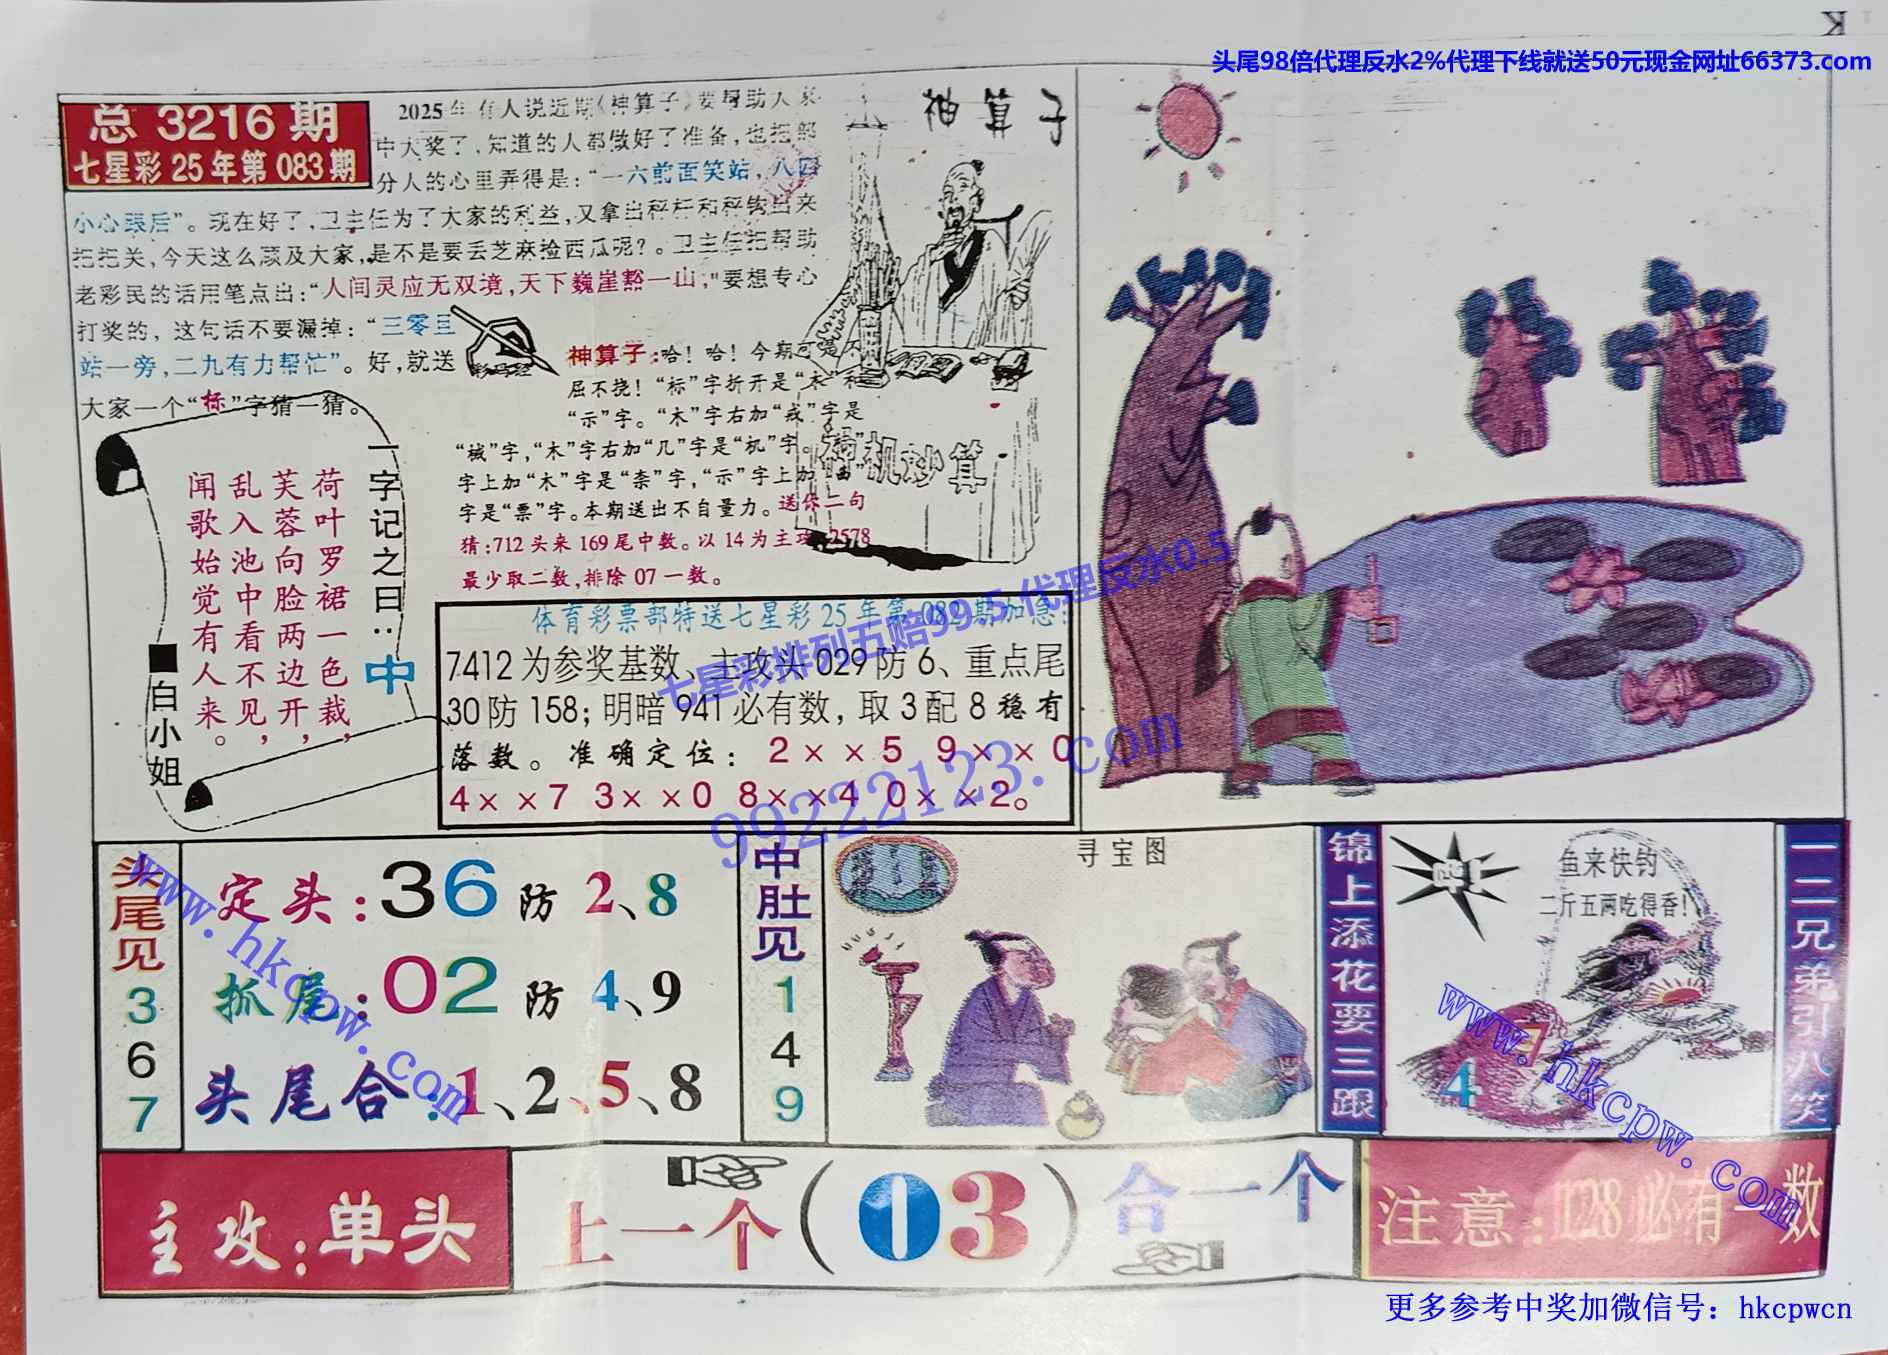 K
头尾98倍代理反水2%代理下线就送50元现金网址66373.com
总 3216 期
七星彩 25 年第 083 期
2025年有人说近期《神算子》要帮助大家
中大奖了,知道的人都做好了准备,也把部
分人的心里弄得是:“一六前面笑站,八四
小心跟后”。现在好了,卫主任为了大家的利益,又拿出秤杆和秤钩出来
把把关,今天这么顾及大家,是不是要丢芝麻捡西瓜呢?。卫主任把帮助
老彩民的话用笔点出:“人间灵应无双境,天下巍崖豁一山,"要想专心
打奖的，这句话不要漏掉：“三零互
站一旁,二九有力帮忙”。好,就送
大家一个“标”字猜一猜。
神算子
神机妙算
神算子:哈！哈！今期可是不
屈不挠！“标”字折开是“木”和
“示”字。“木”字右加“戎”字是
“械”字,“木”字右加“几”字是“机”字。“示”
字上加“木”字是“柰”字,“示”字上加“西”
字是“票”字。本期送出不自量力。送你二句
猜:712头来169尾中数。以14为主攻,2578
最少取二数,排除07一数。
一字记之曰:中
荷叶罗裙一色裁，
芙蓉向脸两边开，
乱入池中看不见，
闻歌始觉有人来。
■白小姐
体育彩票部特送七星彩25年第082期加急:
7412为参奖基数、主攻头029防6、重点尾
30防158；明暗941必有数，取3配8稳有
落数。准确定位：2××5 9××0
4××7 3××0 8××4 0××2。
七星彩排列五赔99.5 代理反水0.5
99222123.com
头尾见367
定头:36防2、8
抓尾:02防4、9
头尾合:1、2、5、8
www.hkcpw.com
中肚见149
寻宝图
锦上添花要三跟
鱼来快钓
二斤五两吃得香!
4
一二兄弟引八笑
www.hkcpw.com
主攻:单头
上一个(03)合一个
注意:128必有一数
更多参考中奖加微信号：hkcpwcn